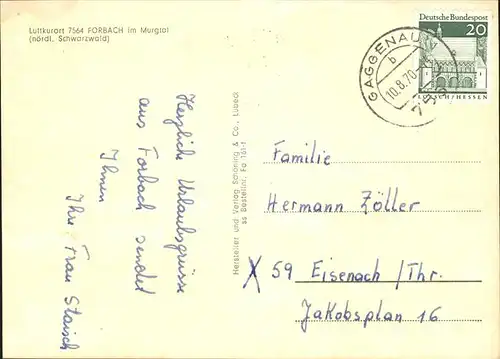 Luftkurort 7564 FORBACH im Murgtal
(nördl. Schwarzwald)
Deutsche Bundespost
20
LORSCH/HESSEN
GAGGENAU
b
10.8.70
Herzliche Urlaubsgrüsse
aus Forbach sendet
Ihnen
Ihre Frau Staisch
Hersteller und Verlag Schöning & Co., Lübeck
ss Bestellnr. Fo 161-f
Familie
Hermann Zöller
X 59 Eisenach/Thr.
Jakobsplan 16